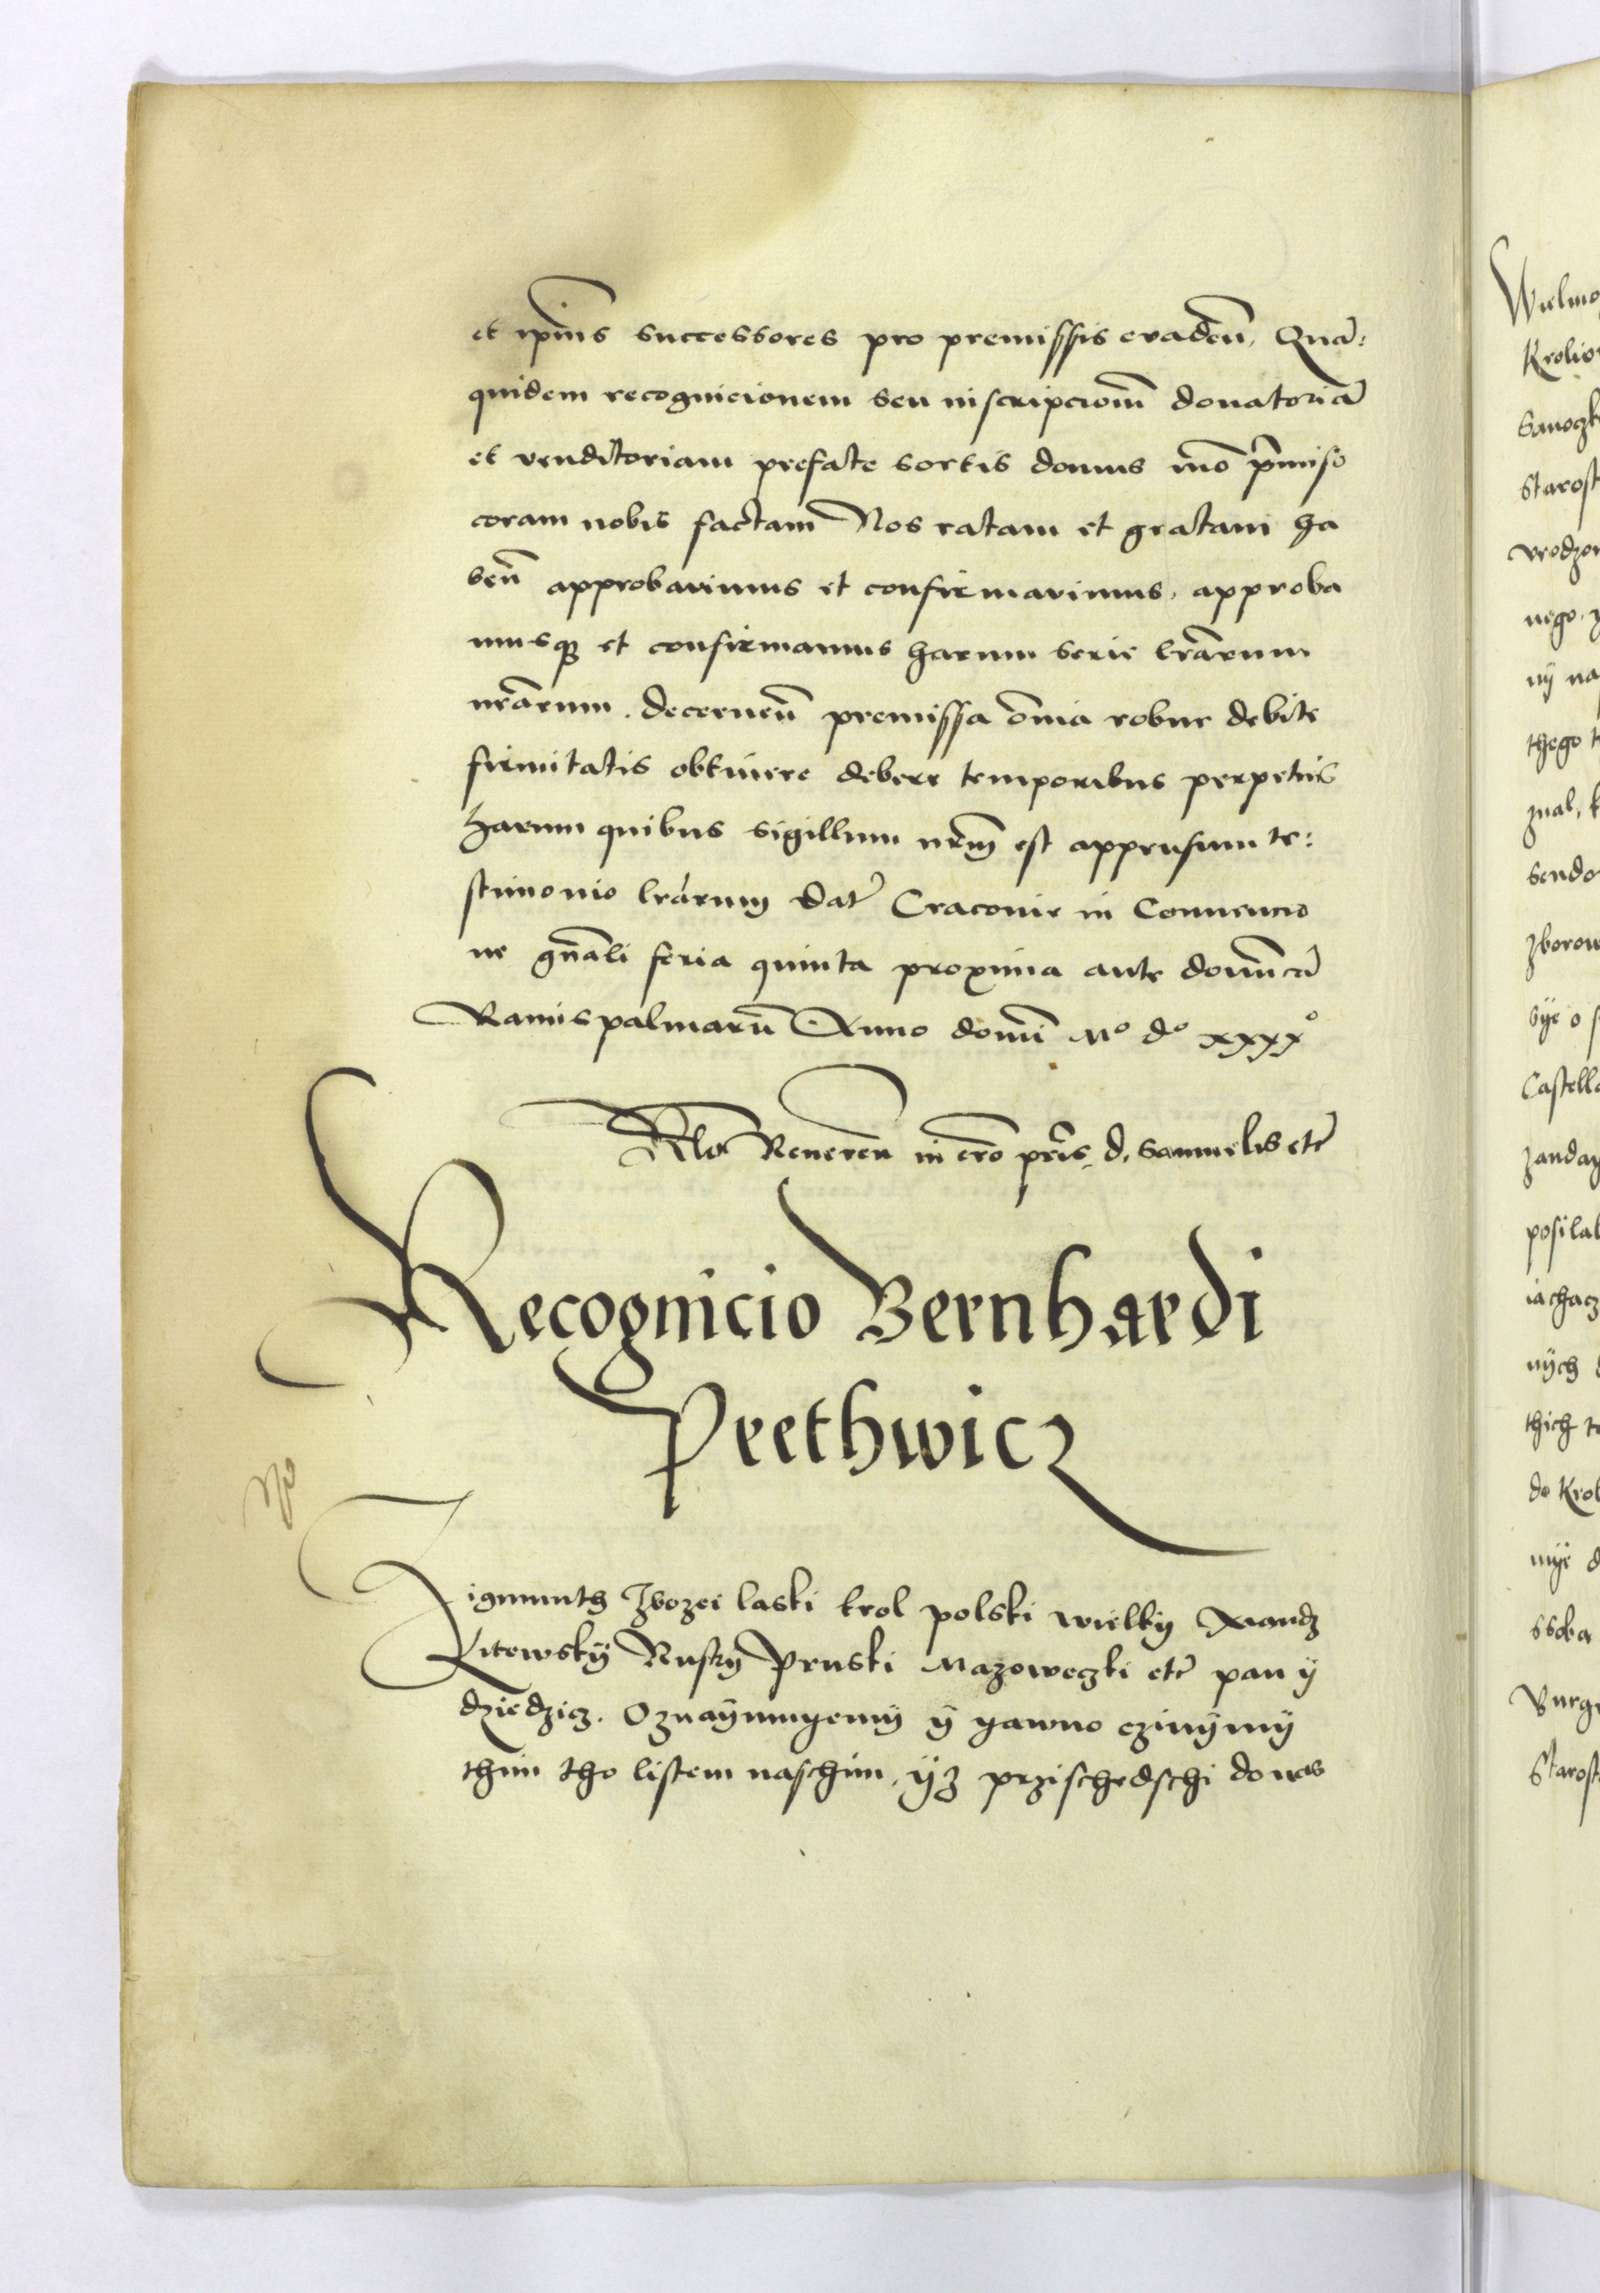 et ipius successores pro premissis evadeñ, Quã:
quidem recognicionem seu inscripcionẽ donatoriã
et venditoriam prefate sortis domus mõ p̃miso
coram nobis factam Nos ratam et gratam ha
beñ approbavimus et confirmavimus, approba
musq3 et confirmamus harum serie lr̃arum
nr̃arum. decerneñ premissa õnia robur debite
firmitatis obtinere debere temporibus perpetuis
harum quibus sigillum nr̃m est appensum te:
stimonio lr̃arum Dat̃ Cracovie in Convencio
ne gñali feria quinta proxima ante domĩcã
Ramispalmarũ Anno domĩ Mº dº xxxxº
Rlo Revereñ in cro pr̃is d. Samuelis etc̃
Recognicio Bernhardi
Prethwicz
Zigmunth Zbozei laski krol polski wielky Xiandz
Litewsky Rusky Pruski Mazoweczki etc̃ pan ÿ
dziedzicz. Oznaÿmuyemÿ ÿ yawno czinÿmÿ
thim tho listem naschim, ÿz przischedschi do nas
Wielmo
Krolio
Sanoczk
Starost
vrodzon
nego. y
nÿ na
thego t
znal, k
sendo
zborow
bÿe o s
Castella
zanday
posilal
iachacz
nÿch d
thich t
do Krol
mÿe d
ssoba
Burg
Starost